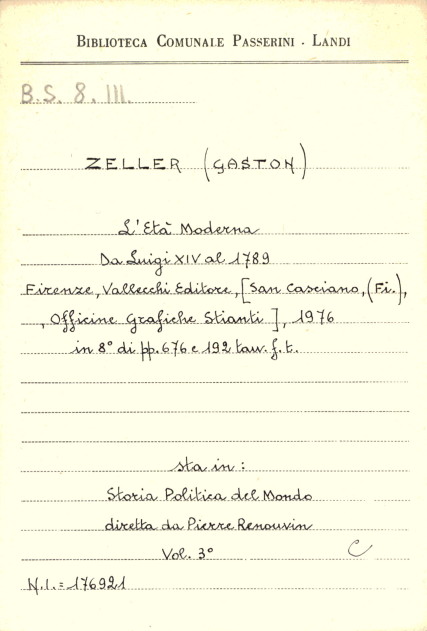 BIBLIOTECA COMUNALE PASSERINI - LANDI
B.S. 8. III.
ZELLER (GASTON)
L'Età Moderna
Da Luigi XIV al 1789
Firenze, Vallecchi Editore, [San Casciano, (Fi.),
, Officine Grafiche Stianti ], 1976
in 8° di pp. 676 e 192 tav. f. t.
sta in :
Storia Politica del Mondo
diretta da Pierre Renouvin
Vol. 3°
C
N.I. = 176921